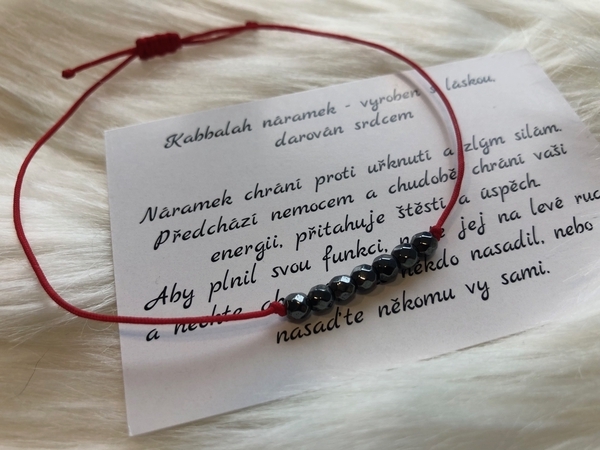 Kabbalah náramek - vyroben s láskou,
darován srdcem
Náramek chrání proti uřknutí a zlým silám.
Předchází nemocem a chudobě, chrání vaši
energii, přitahuje štěstí a úspěch.
Aby plnil svou funkci, jej na levé ruc
a nechte někdo nasadil, nebo
nasaďte někomu vy sami.